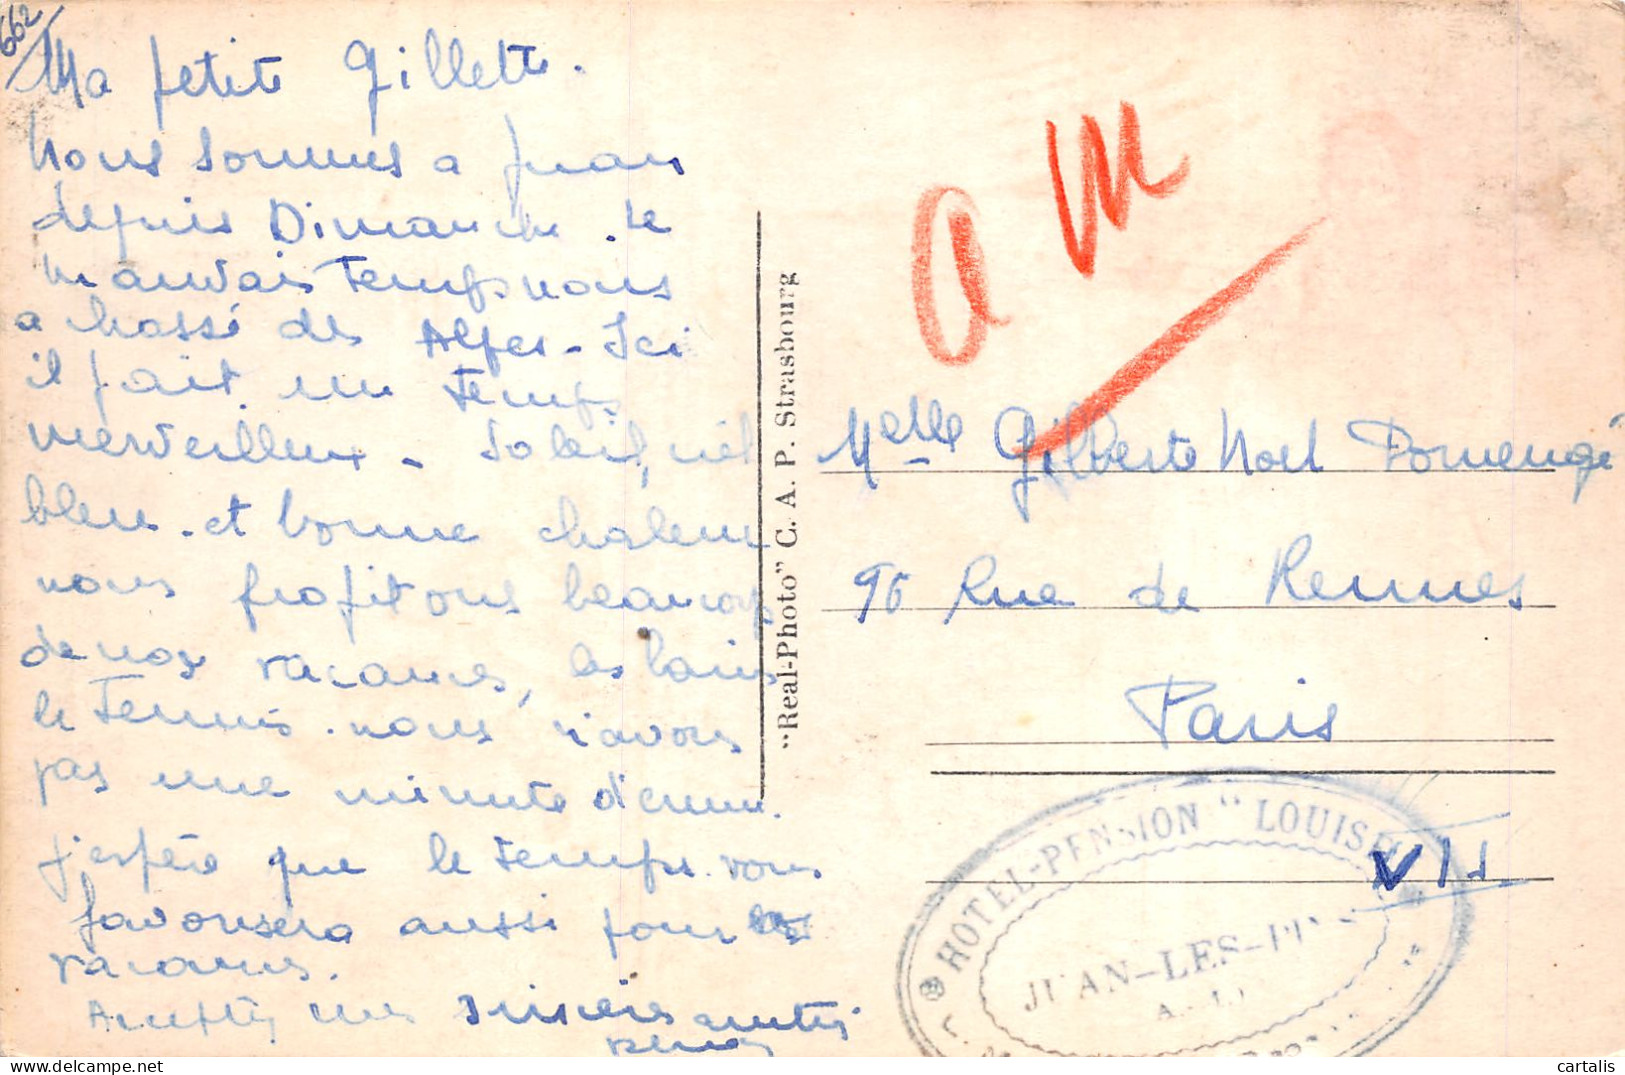 662
Ma petite Gillette.
Nous sommes a Juan
depuis Dimanche. Le
mauvais temps nous
a chassé des Alpes - Ici
il fait un temps
merveilleux - Soleil, ciel
bleu. et bonne chaleur
nous profitons beaucoup
de nos vacances, les bains
le Tennis. nous n'avons
pas une minute d'ennui.
j'espère que le temps vous
favorisera aussi pour les
vacances.
Amitiés mes sincères amitiés
"Real-Photo" C. A. P. Strasbourg
a m
Melle Gilberte Noel Domengé
90 Rue de Rennes
Paris
VI
HOTEL-PENSION "LOUISE"
JUAN-LES-PINS
cartalis